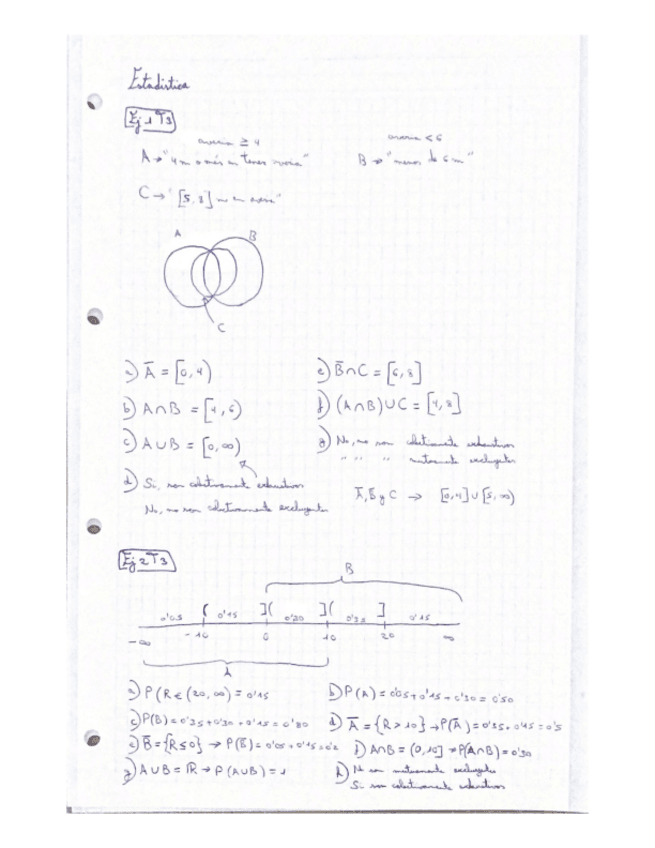 Estadística
Ej 1 T3
avería ≥ 4
avería < 6
A → "4 m o más en tener avería"
B → "menos de 6 m"
C → "[5, 8] m en avería"
A
B
C
a) A̅ = [0, 4)
e) B̅∩C = [6, 8]
b) A∩B = [4, 6)
f) (A∩B)∪C = [4, 8]
c) A∪B = [0, ∞)
g) No, no son colectivamente exhaustivos
" " " mutuamente excluyentes
d) Si, son colectivamente exhaustivos
No, no son colectivamente excluyentes
A̅, B̅ y C → [0,4] ∪ [5, ∞)
Ej 2 T3
B
0'05 ( 0'15 ]( 0'30 ]( 0'35 ] 0'15
-∞ -10 0 10 20 ∞
A
a) P(R ∈ (20, ∞) = 0'15
b) P(A) = 0'05 + 0'15 + 0'30 = 0'50
c) P(B) = 0'35 + 0'30 + 0'15 = 0'80
d) A̅ = {R > 10} → P(A̅) = 0'35 + 0'15 = 0'5
e) B̅ = {R ≤ 0} → P(B̅) = 0'05 + 0'15 = 0'2
f) A∩B = (0, 10] → P(A∩B) = 0'30
g) A∪B = ℝ → P(A∪B) = 1
h) No son mutuamente excluyentes
Si son colectivamente exhaustivos